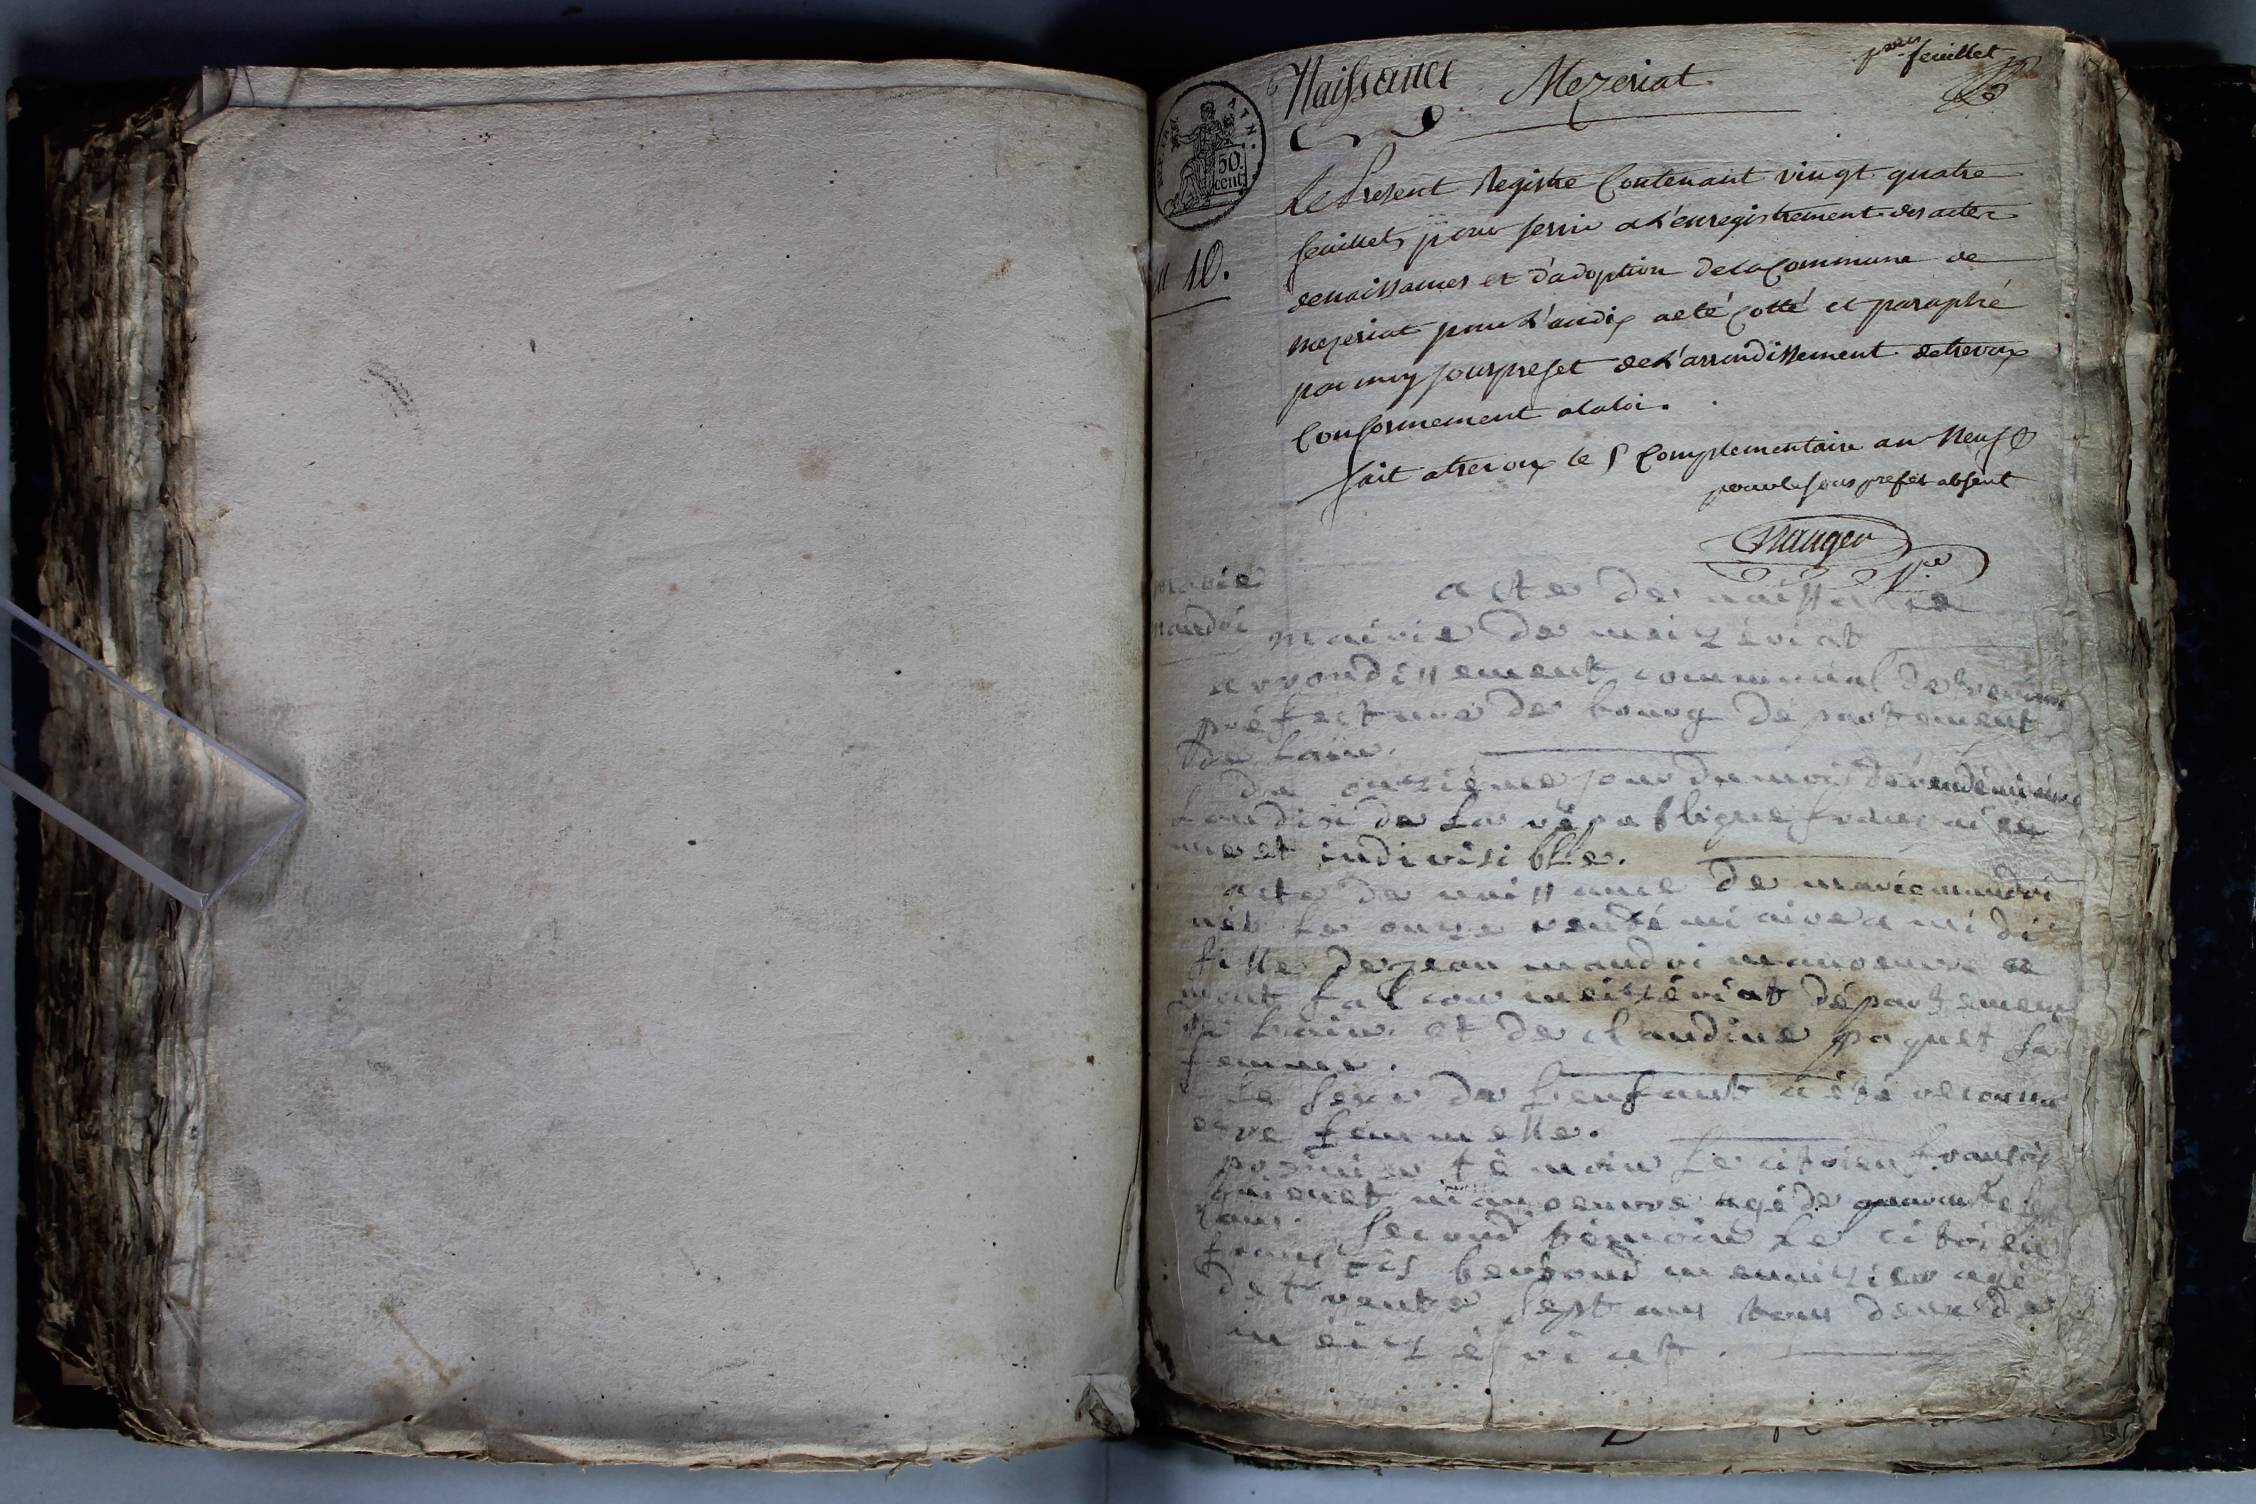 Naissance Mezeriat
feuillet
ATN.
50
cent
an 10.
Le Present Registre Contenant vingt quatre
feuillets pour servir a L'enregistrement des actes
de naissances et d'adoption de la Commune de
mezeriat pour L'an dix a eté Cotté et paraphé
par moy souspreset de L'arrondissement de trevoux
Conformement a la loi.
fait a trevoux le 5 Complementaire an Neuf
pour le sous prefet absent
marie
mandri
acte de naissance
mairie de meizériat
arrondissement communal de trevoux
préfecture de bourg departement
de Lain.
du onzième jour du mois de vendémiaire
Lan dix de La république française
une et indivisiblle.
acte de naissance de marie mandri
née Le onze vendémiaire a midi
fille de jean mandri manoeuvre a
mont falcon meizériat département
de Lain et de claudine paquet sa
femme.
Le sexe de Lenfant a été reconnu
etre femmelle.
premier témoin Le citoien françois
manoeuvre agé de quarante
ans. second témoin Le citoien
françois meunizier agé
de trente sept ans tous deux de
meizériat.